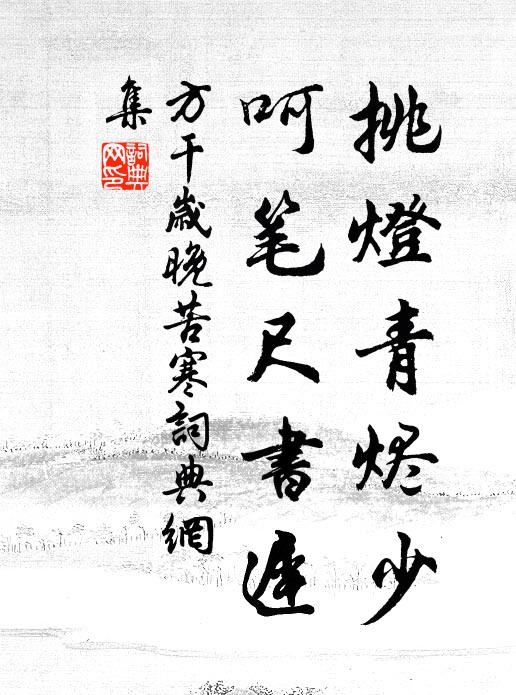 挑燈青烬少
呵笔尺書遲
方干歲晚苦寒詞典網
集
詞典网印